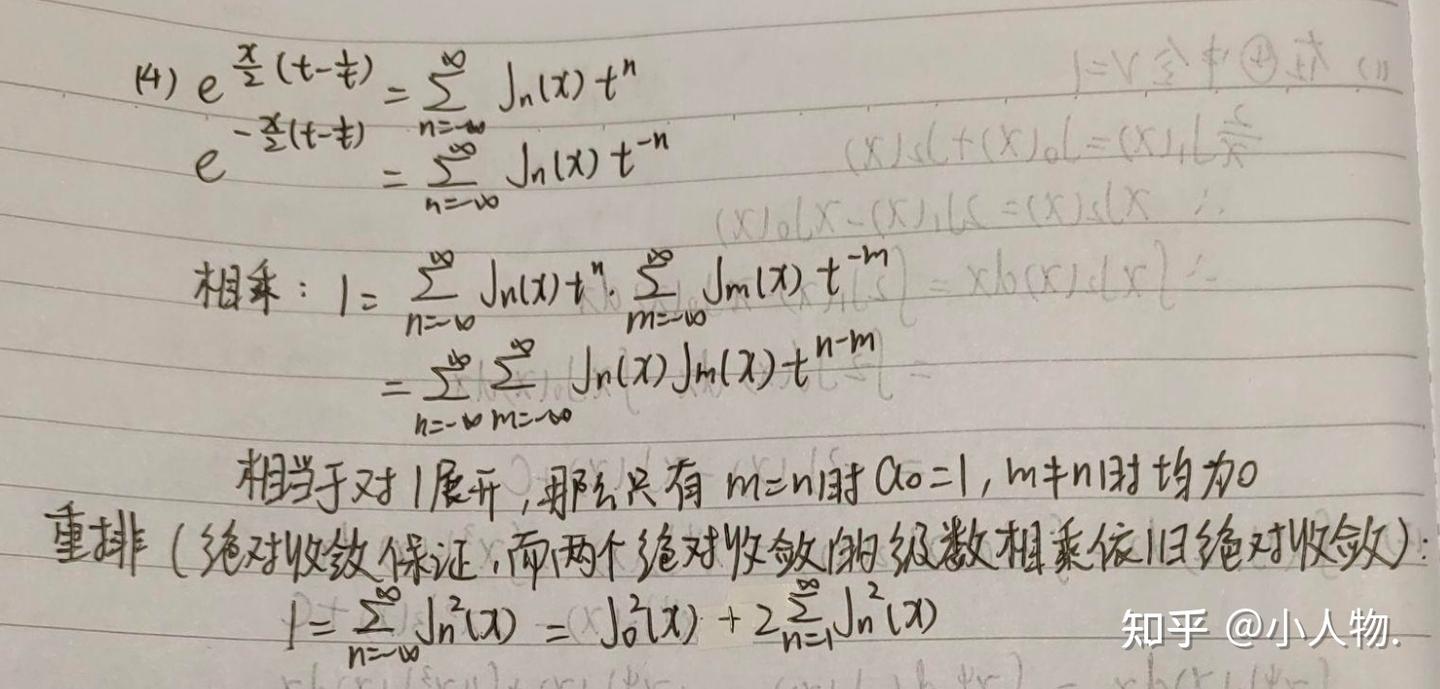 (4) e^{x/2 (t-1/t)} = \sum_{n=-∞}^{∞} J_n(x) t^n
e^{-x/2 (t-1/t)} = \sum_{n=-∞}^{∞} J_n(x) t^{-n}
相乘: 1 = \sum_{n=-∞}^{∞} J_n(x) t^n · \sum_{m=-∞}^{∞} J_m(x) t^{-m}
= \sum_{n=-∞}^{∞} \sum_{m=-∞}^{∞} J_n(x) J_m(x) t^{n-m}
相当于对1展开,那么只有 m=n时 a_0=1, m≠n时均为0
重排(绝对收敛保证,而两个绝对收敛的级数相乘依旧绝对收敛):
1 = \sum_{n=-∞}^{∞} J_n^2(x) = J_0^2(x) + 2\sum_{n=1}^{∞} J_n^2(x)
知乎 @小人物.